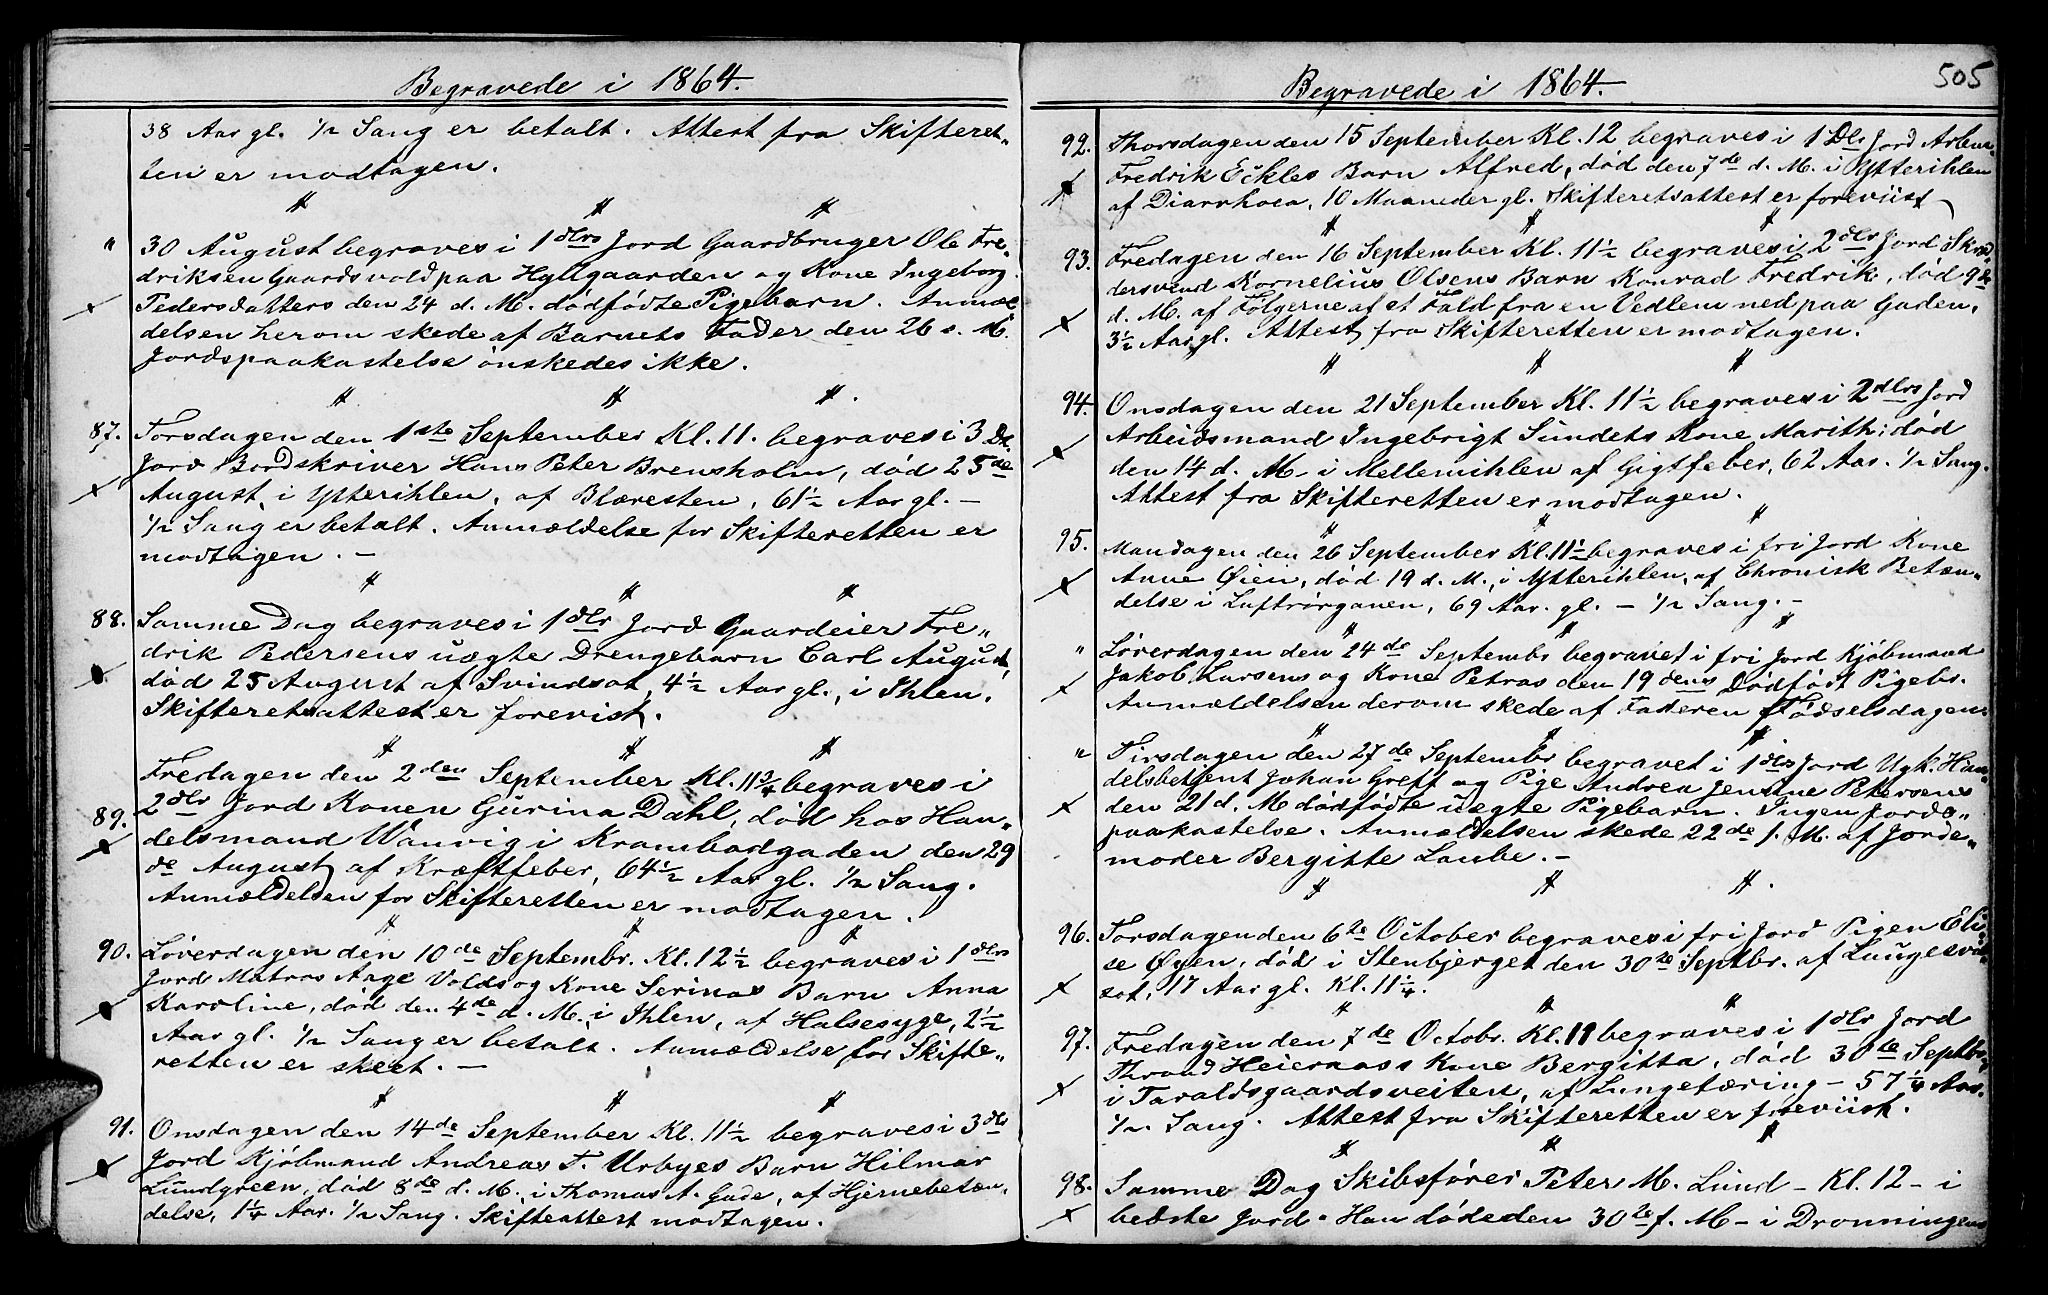 Begravede i 1864.
38 Aar gl. 1/2 Sang er betalt. Attest fra Skifteret„
ten er modtagen.
" 30 August begraves i 1 dlrs Jord Gaardbruger Ole Fre„
driksen Gaardsvold paa Hyllgaarden og Kone Ingeborg
Pedersdatters den 24 d. M. dødfødte Pigebarn. Anmæl
delsen herom skede af Barnets Fader den 26 s. M.
Jordspaakastelse ønskedes ikke.
87. Torsdagen den 1ste September Kl. 11. begraves i 3 Dl.
Jord Bordskriver Hans Peter Brensholm, død 25de
August, i Ytterihlen, af Blæresten, 61 1/2 Aar gl. –
1/2 Sang er betalt. Anmældelse for Skifteretten er
modtagen. –
88. Samme Dag begraves i 1 dlr Jord Gaardeier Fre„
drik Pedersens uægte Drengebarn Carl August,
død 25 August af Svindsot, 4 1/2 Aar gl., i Ihlen.
Skifteretsattest er forevist.
Fredagen den 2den September Kl. 11 3/4 begraves i
89. 2 dlr Jord Konen Gurina Dahl, død hos Han„
delsmand Wanvig i Krambodgaden den 29
de August af Kræftfeber, 64 1/2 Aar gl. 1/2 Sang.
Anmældelden for Skifteretten er modtagen.
90. Løverdagen den 10de Septembr. Kl. 12 1/2 begraves i 1 dlrs
Jord Matros Aage Volds og Kone Serinas Barn Anna
Karoline, død den 4de d. M. i Ihlen, af Halsesyge, 2 1/2
Aar gl. 1/2 Sang er betalt. Anmældelse for Skifte„
retten er skeet. –
91. Onsdagen den 14de September Kl. 11 1/2 begraves i 3 dlr
Jord Kjøbmand Andreas F. Urbyes Barn Hilmar
Lundgreen, død 8de d. M., i Thomas A. Gade, af Hjernebetæn„
delse, 1 1/4 Aar. 1/2 Sang. Skifteattest modtagen.
Begravede i 1864.
505
92. Thorsdagen den 15 September Kl. 12 begraves i 1 Dlr Jord Arbm.
Fredrik Eckles Barn Alfred, død den 7de d. M. i Ytterihlen
af Diarrhoea, 10 Maaneder gl. Skifteretsattest er foreviist
93. Fredagen den 16 September Kl. 11 1/2 begraves i 2 dlr Jord Skræd„
dersvend Kornelius Olsens Barn Konrad Fredrik, død 9de
d. M. af Følgerne af et Fald fra en Vedlem ned paa Gaden,
3 1/2 Aar gl. Attest fra Skifteretten er modtagen.
94. Onsdagen den 21 September Kl. 11 1/2 begraves i 2 dlrs Jord
Arbeidsmand Ingebrigt Sundets Kone Marith; død
den 14 d. M. i Mellemihlen af Gigtfeber, 62 Aar. 1/2 Sang.
Attest fra Skifteretten er modtagen.
95. Mandagen den 26 September Kl. 11 1/2 begraves i fri Jord Kone
Anne Øien, død 19 d. M., i Ytterihlen, af Chronisk Betæn„
delse i Luftrørganen, 69 Aar. gl. – 1/2 Sang. –
" Løverdagen den 24de Septembr begravet i fri Jord Kjøbmand
Jakob Larsens og Kone Petras den 19 dens Dødfødt Pigebr.
Anmældelsen derom skede af Faderen Fødselsdagen.
" Tirsdagen den 27de Septembr begravet i 1 dlrs Jord Ugk. Han„
delsbetjent Johan Greff og Pige Andrea Jensine Petersens
den 21 d. M dødfødte uægte Pigebarn. Ingen Jords„
paakastelse. Anmældelsen skede 22de f. M. af Jorde„
moder Bergitte Laube. –
96. Torsdagen den 6te October begraves i fri Jord Pigen Eli„
se Øyen, død i Stenbjerget den 30te Septbr. af Lungesvind„
sot, 17 Aar gl. Kl. 11 1/4.
97. Fredagen den 7de Octobr. Kl. 11 begraves i 1 dlr Jord
Thrond Heiernæss Kone Bergitta, død 30te Septbr.
i Taraldsgaardsveiten, af Lungetæring – 57 1/4 Aar.
1/2 Sang. Attest fra Skifteretten er foreviist.
98. Samme Dag Skibsfører Peter M. Lund – Kl. 12 – i
bedste Jord. Han døde den 30te f. M – i Dronningens